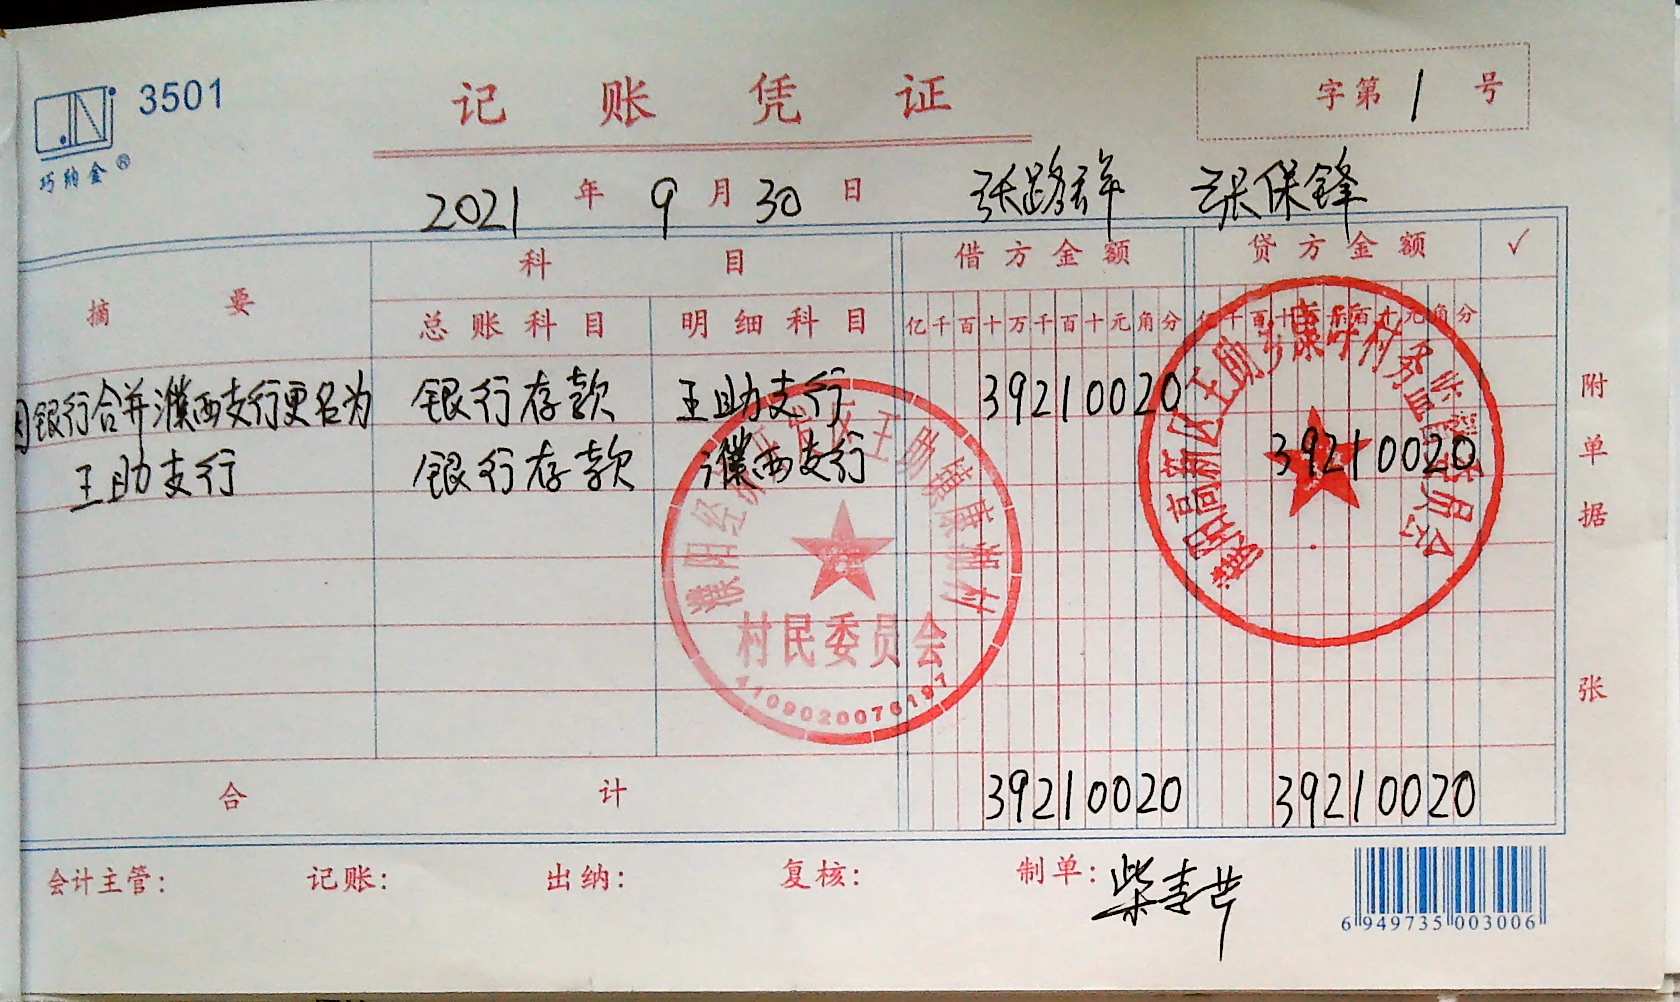 3501
巧纳金®
记账凭证
字第 1 号
2021 年 9 月 30 日 张路祥 张保锋
摘要 科目 借方金额 贷方金额 √
总账科目 明细科目 亿千百十万千百十元角分 亿千百十万千百十元角分
因银行合并濮西支行更名为 银行存款 王助支行 39210020
王助支行 银行存款 濮西支行 39210020
附单据 张
村民委员会
合计 39210020 39210020
会计主管: 记账: 出纳: 复核: 制单:
6 949735 003006